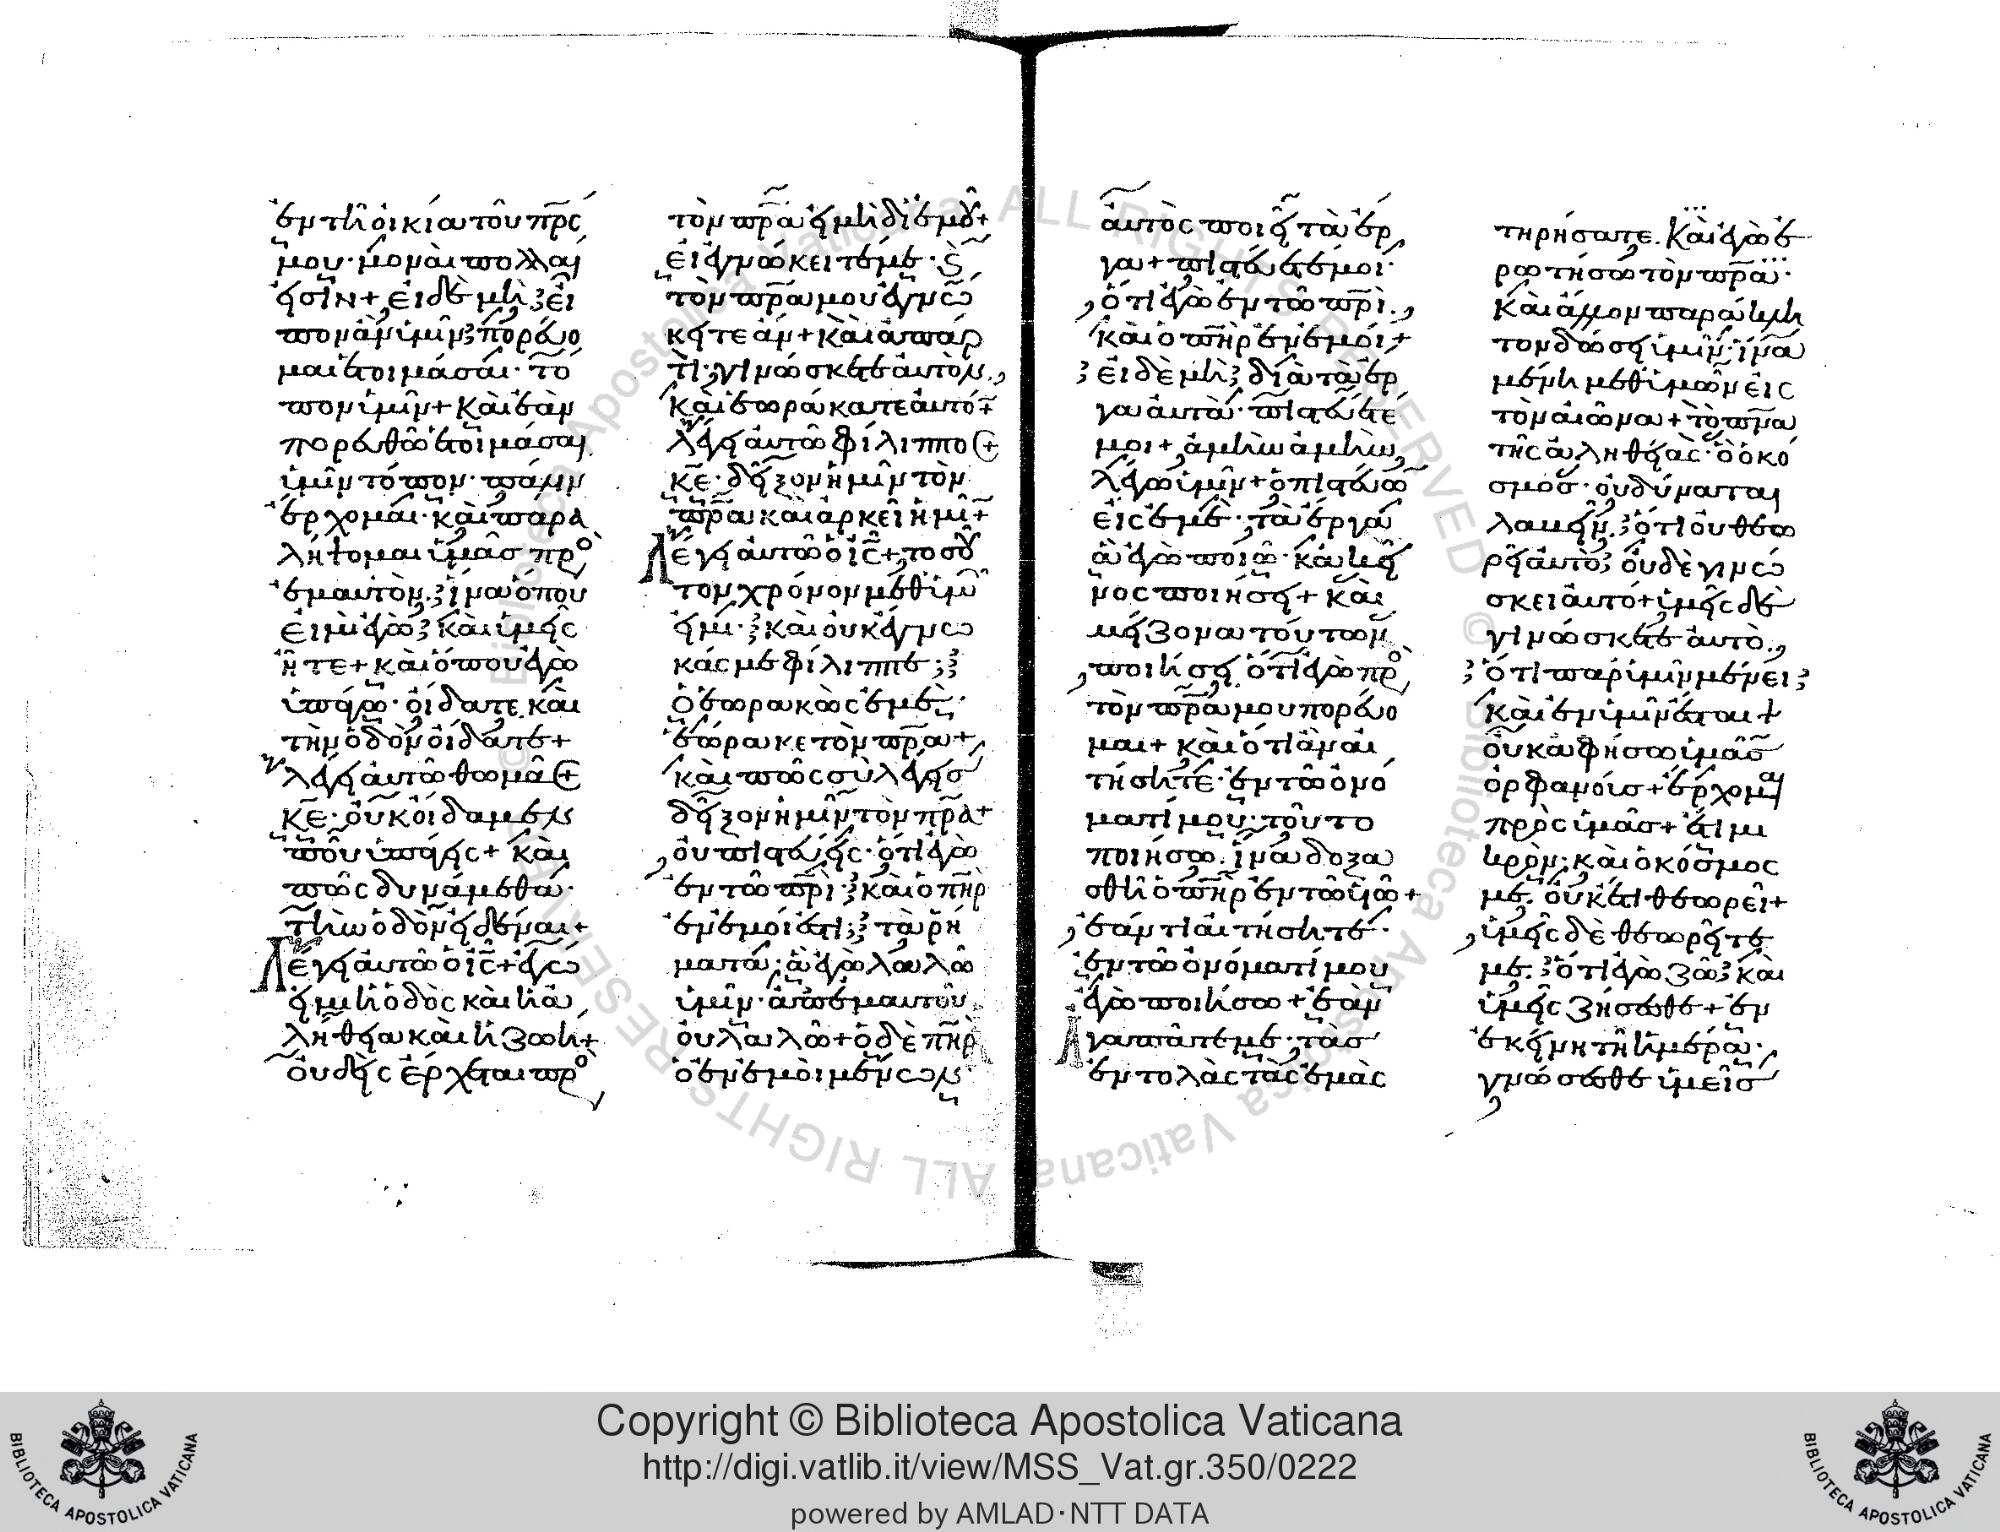 ἐν τῆ οἰκία τοῦ πρς
μου· μοναὶ πολλαί
εἰσιν+ εἰ δὲ μὴ· εἶ
πον ἂν ὑμῖν· πορεύο
μαι ἑτοιμάσαι· τό
πον ὑμῖν+ καὶ ἐὰν
πορευθῶ ἑτοιμάσαι
ὑμῖν τόπον· πάλιν
ἔρχομαι· καὶ παρα
λήψομαι ὑμᾶς πρὸ
ἐμαυτὸν· ἵνα ὅπου
εἰμὶ ἐγὼ· καὶ ὑμεῖς
ἦτε+ καὶ ὅπου ἐγὼ
ὑπάγω· οἴδατε καὶ
τὴν ὁδὸν οἴδατε+
λέγει αὐτῶ θωμᾶς+
κε· οὐκ οἴδαμεν
ποῦ ὑπάγεις+ καὶ
πῶς δυνάμεθα·
τὴν ὁδὸν εἰδέναι+
Λέγει αὐτῶ ὁ ις+ ἐγώ
εἰμι ἡ ὁδὸς καὶ ἡ ἀ
λήθεια καὶ ἡ ζωή+
οὐδεὶς ἔρχεται πρὸ
τὸν πρα εἰ μὴ δι ἐμοῦ+
εἰ ἐγνώκειτέ με· καὶ
τὸν πρα μου ἐγνώ
κειτε ἄν+ καὶ ἀπάρ
τι· γινώσκετε αὐτὸν·
καὶ ἑωράκατε αὐτόν+
λέγει αὐτῶ φίλιππος+
κε· δεῖξον ἡμῖν τὸν
πρα καὶ ἀρκεῖ ἡμῖν+
Λέγει αὐτῶ ὁ ις+ τοσοῦ
τον χρόνον μεθ ὑμῶν
εἰμι· καὶ οὐκ ἔγνω
κάς με φίλιππε;
ὁ ἑωρακὼς ἐμὲ·
ἑώρακε τὸν πρα+
καὶ πῶς σὺ λέγεις
δεῖξον ἡμῖν τὸν πρα+
οὐ πιστεύεις· ὅτι ἐγὼ
ἐν τῶ πρι· καὶ ὁ πηρ
ἐν ἐμοί ἐστι; τὰ ῥή
ματα· ἃ ἐγὼ λαλῶ
ὑμῖν· ἀπ ἐμαυτοῦ
οὐ λαλῶ+ ὁ δὲ πηρ
ὁ ἐν ἐμοὶ μένων
αὐτὸς ποιεῖ τὰ ἔρ
γα+ πιστεύετέ μοι·
ὅτι ἐγὼ ἐν τῶ πρι·
καὶ ὁ πηρ ἐν ἐμοί+
εἰ δὲ μὴ· διὰ τὰ ἔρ
γα αὐτὰ· πιστεύετέ
μοι+ ἀμὴν ἀμὴν
λέγω ὑμῖν+ ὁ πιστεύων
εἰς ἐμὲ· τὰ ἔργα
ἃ ἐγὼ ποιῶ· κἀκεῖ
νος ποιήσει+ καὶ
μείζονα τούτων
ποιήσει· ὅτι ἐγὼ πρὸ
τὸν πρα μου πορεύο
μαι+ καὶ ὅτι ἂν αἰ
τήσητε· ἐν τῶ ὀνό
ματί μου· τοῦτο
ποιήσω· ἵνα δοξα
σθῆ ὁ πηρ ἐν τῶ υἱῶ+
ἐάν τι αἰτήσητε·
ἐν τῶ ὀνόματί μου
ἐγὼ ποιήσω+ ἐὰν
ἀγαπᾶτέ με· τὰς
ἐντολὰς τὰς ἐμὰς
τηρήσατε· καὶ ἐγὼ ἐ
ρωτήσω τὸν πρα·
καὶ ἄλλον παράκλη
τον δώσει ὑμῖν· ἵνα
μένη μεθ ὑμῶν εἰς
τὸν αἰῶνα+ τὸ πνα
τῆς ἀληθείας· ὃ ὁ κό
σμος· οὐ δύναται
λαβεῖν· ὅτι οὐ θεω
ρεῖ αὐτὸ· οὐδὲ γινώ
σκει αὐτό+ ὑμεῖς δὲ
γινώσκετε αὐτὸ·
ὅτι παρ ὑμῖν μένει·
καὶ ἐν ὑμῖν ἔσται+
οὐκ ἀφήσω ὑμᾶς
ὀρφανούς+ ἔρχομαι
πρὸς ὑμᾶς+ ἔτι μι
κρὸν· καὶ ὁ κόσμος
με· οὐκέτι θεωρεῖ+
ὑμεῖς δὲ θεωρεῖτέ
με· ὅτι ἐγὼ ζῶ· καὶ
ὑμεῖς ζήσεσθε+ ἐν
ἐκείνη τῆ ἡμέρα·
γνώσεσθε ὑμεῖς
Copyright © Biblioteca Apostolica Vaticana
http://digi.vatlib.it/view/MSS_Vat.gr.350/0222
powered by AMLAD·NTT DATA
BIBLIOTECA APOSTOLICA VATICANA
BIBLIOTECA APOSTOLICA VATICANA
© Biblioteca Apostolica Vaticana ALL RIGHTS RESERVED
© Biblioteca Apostolica Vaticana ALL RIGHTS RESERVED